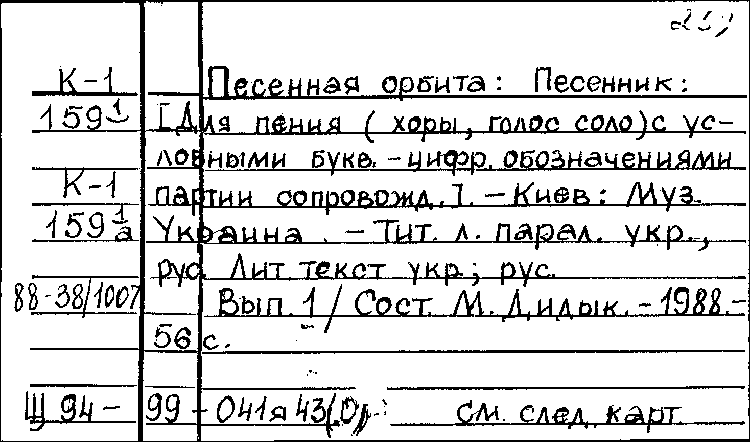 К-1 Песенная орбита: Песенник:
159 1/ [Для пения (хоры, голос соло) с ус-
ловными букв.-цифр. обозначениями
К-1 партии сопровожд.]. - Киев: Муз.
159 1/а Украина. - Тит. л. парал. укр.,
рус. Лит. текст укр.; рус.
88-38/1007 Вып. 1 / Сост. М. Дидык. - 1988. -
56 с.
Щ 94 - 99 - 041я43(0) см. след. карт.